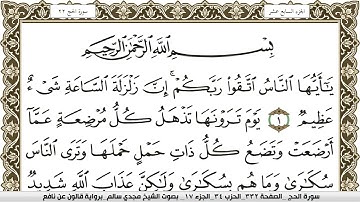 الجزء السابع عشر
سورة الحج ٢٢
بِسْمِ اللَّهِ الرَّحْمَٰنِ الرَّحِيمِ
يَٰٓأَيُّهَا النَّاسُ اتَّقُوا رَبَّكُمْ إِنَّ زَلْزَلَةَ السَّاعَةِ شَيْءٌ
عَظِيمٌ ١ يَوْمَ تَرَوْنَهَا تَذْهَلُ كُلُّ مُرْضِعَةٍ عَمَّا
أَرْضَعَتْ وَتَضَعُ كُلُّ ذَاتِ حَمْلٍ حَمْلَهَا وَتَرَى النَّاسَ
سُكَٰرَىٰ وَمَا هُم بِسُكَٰرَىٰ وَلَٰكِنَّ عَذَابَ اللَّهِ شَدِيدٌ
سورة الحج الصفحة ٣٣٢ الحزب ٣٤ الجزء ١٧ بصوت الشيخ مجدي سالم برواية قالون عن نافع